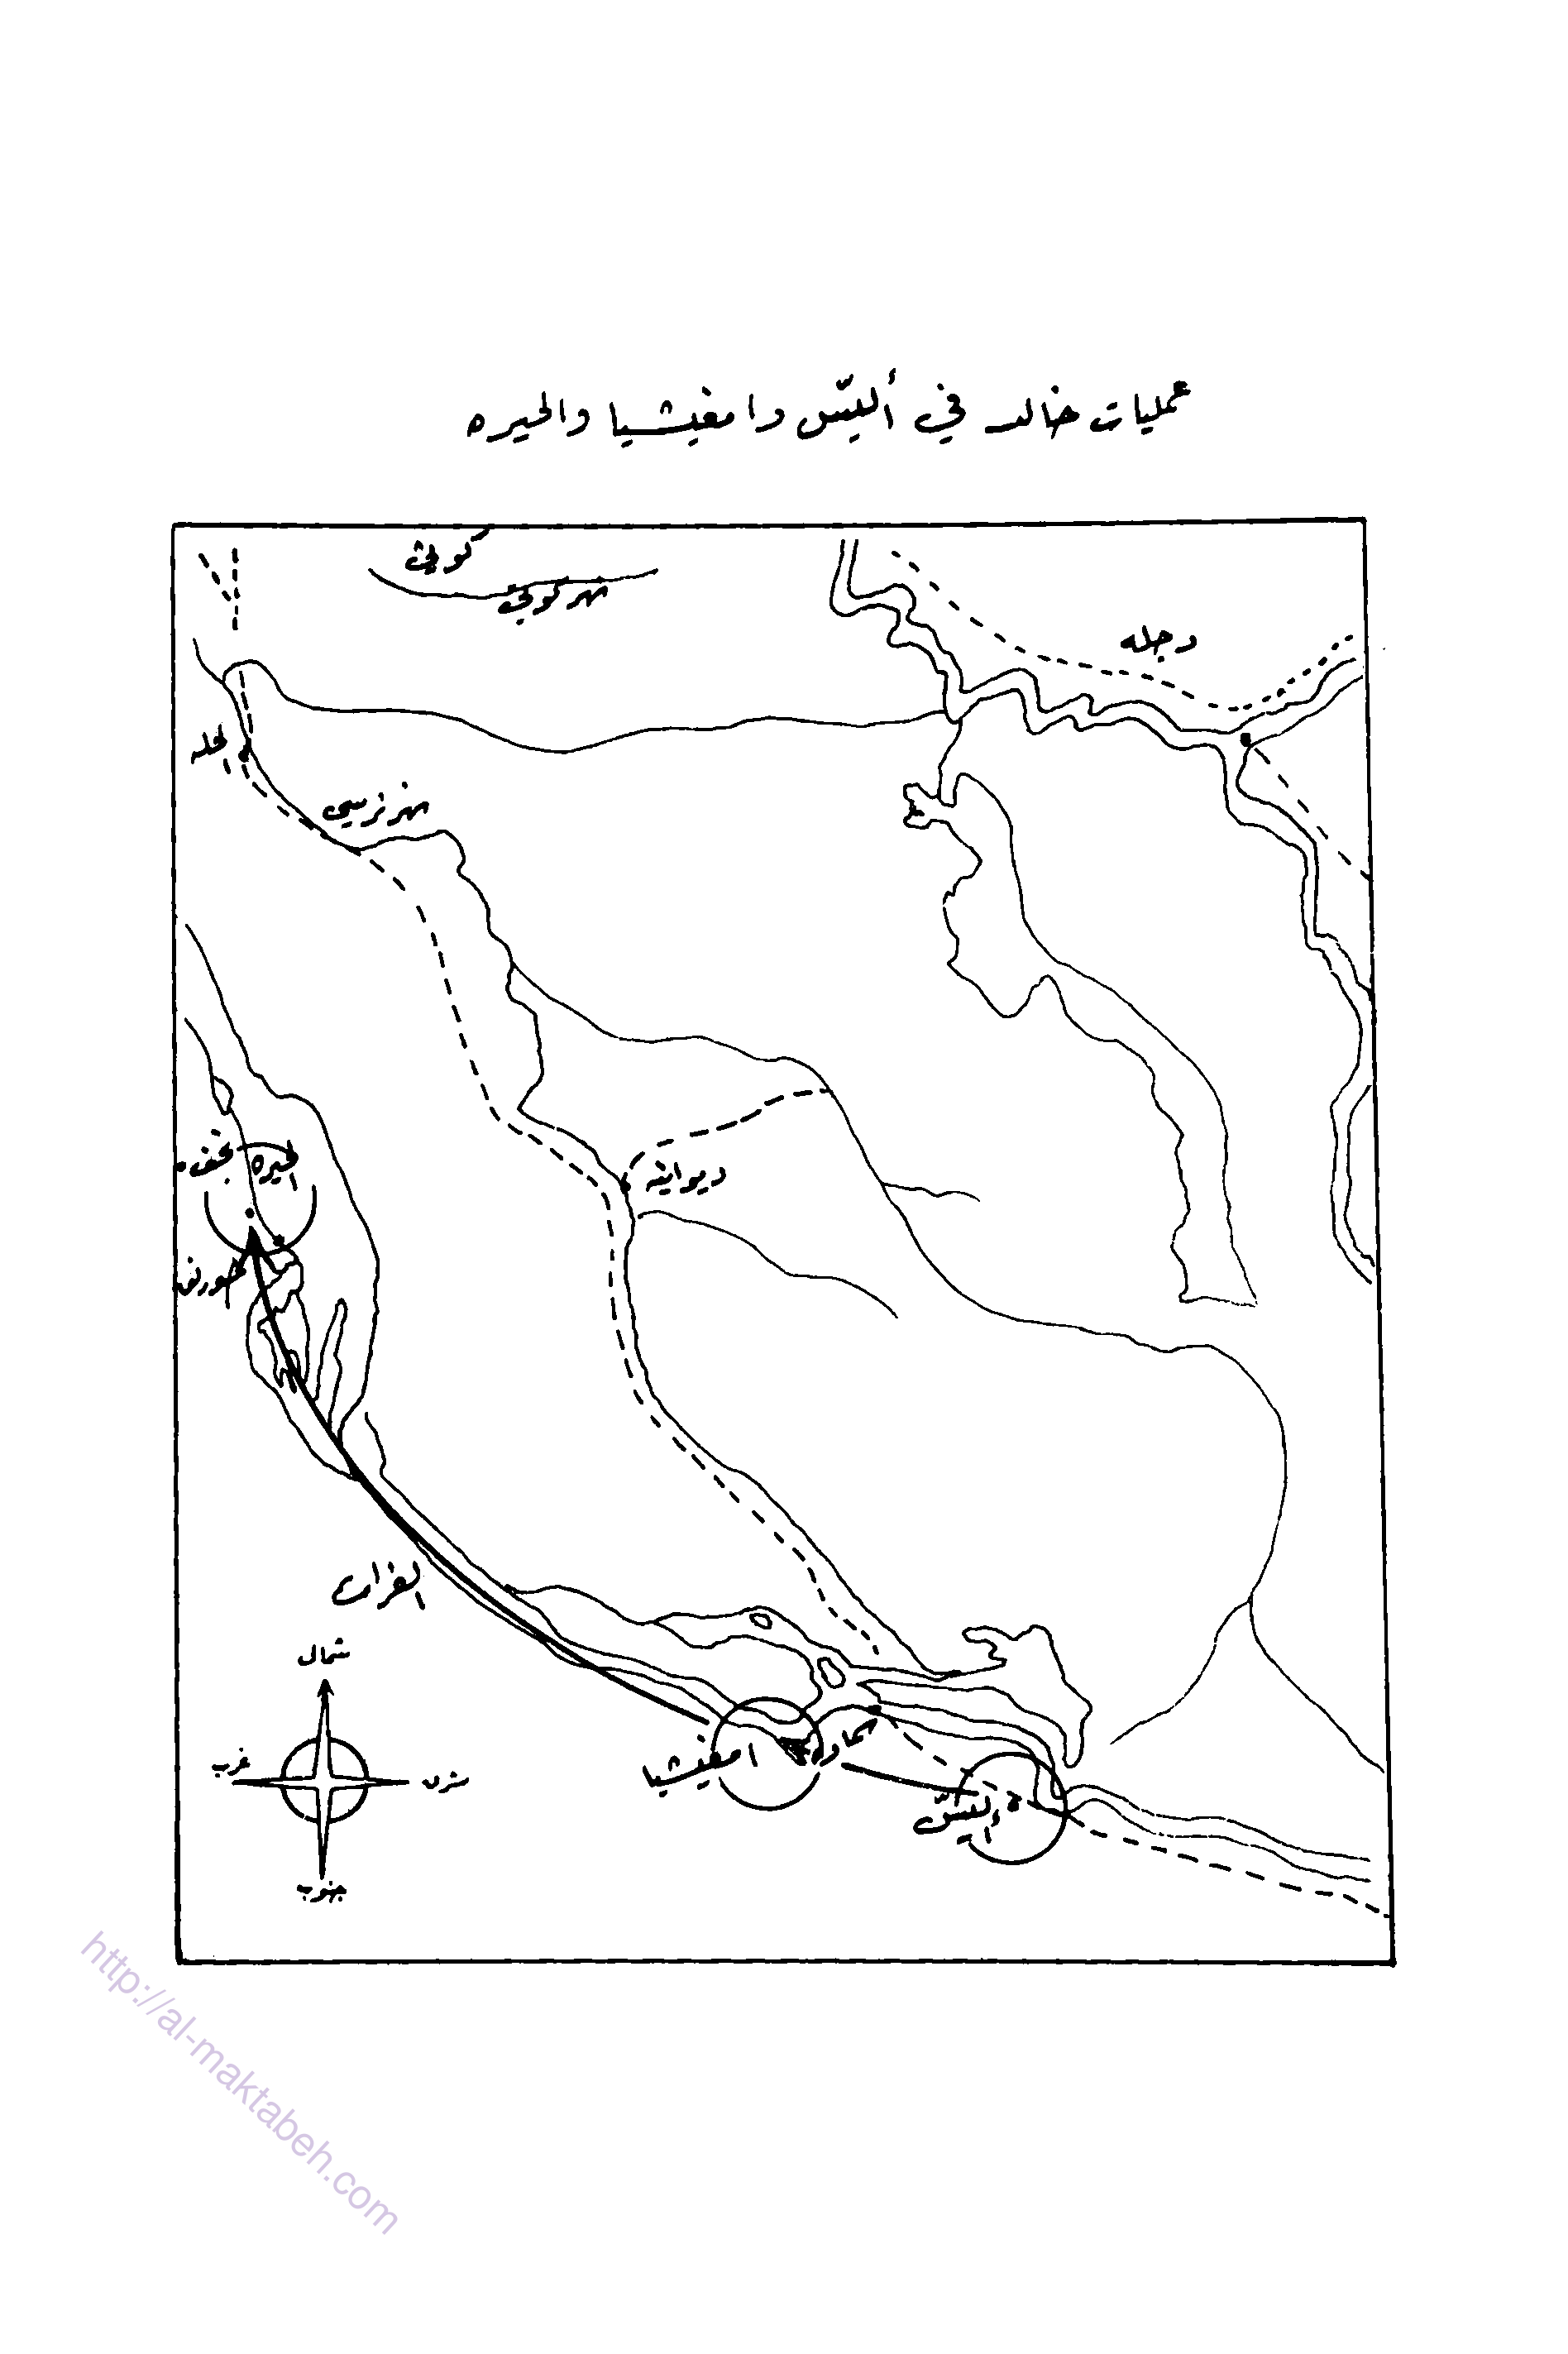 عمليات خالد في أليّس وامغيشيا والحيره
كوثى
نهر كوثى
دجله
الحله
نهر نرسي
الحيره
نجف
ديوانيه
خورنق
الفرات
شمال
غرب
شرق
جنوب
امغيشيا
سماوه
أليّس
http://al-maktabeh.com